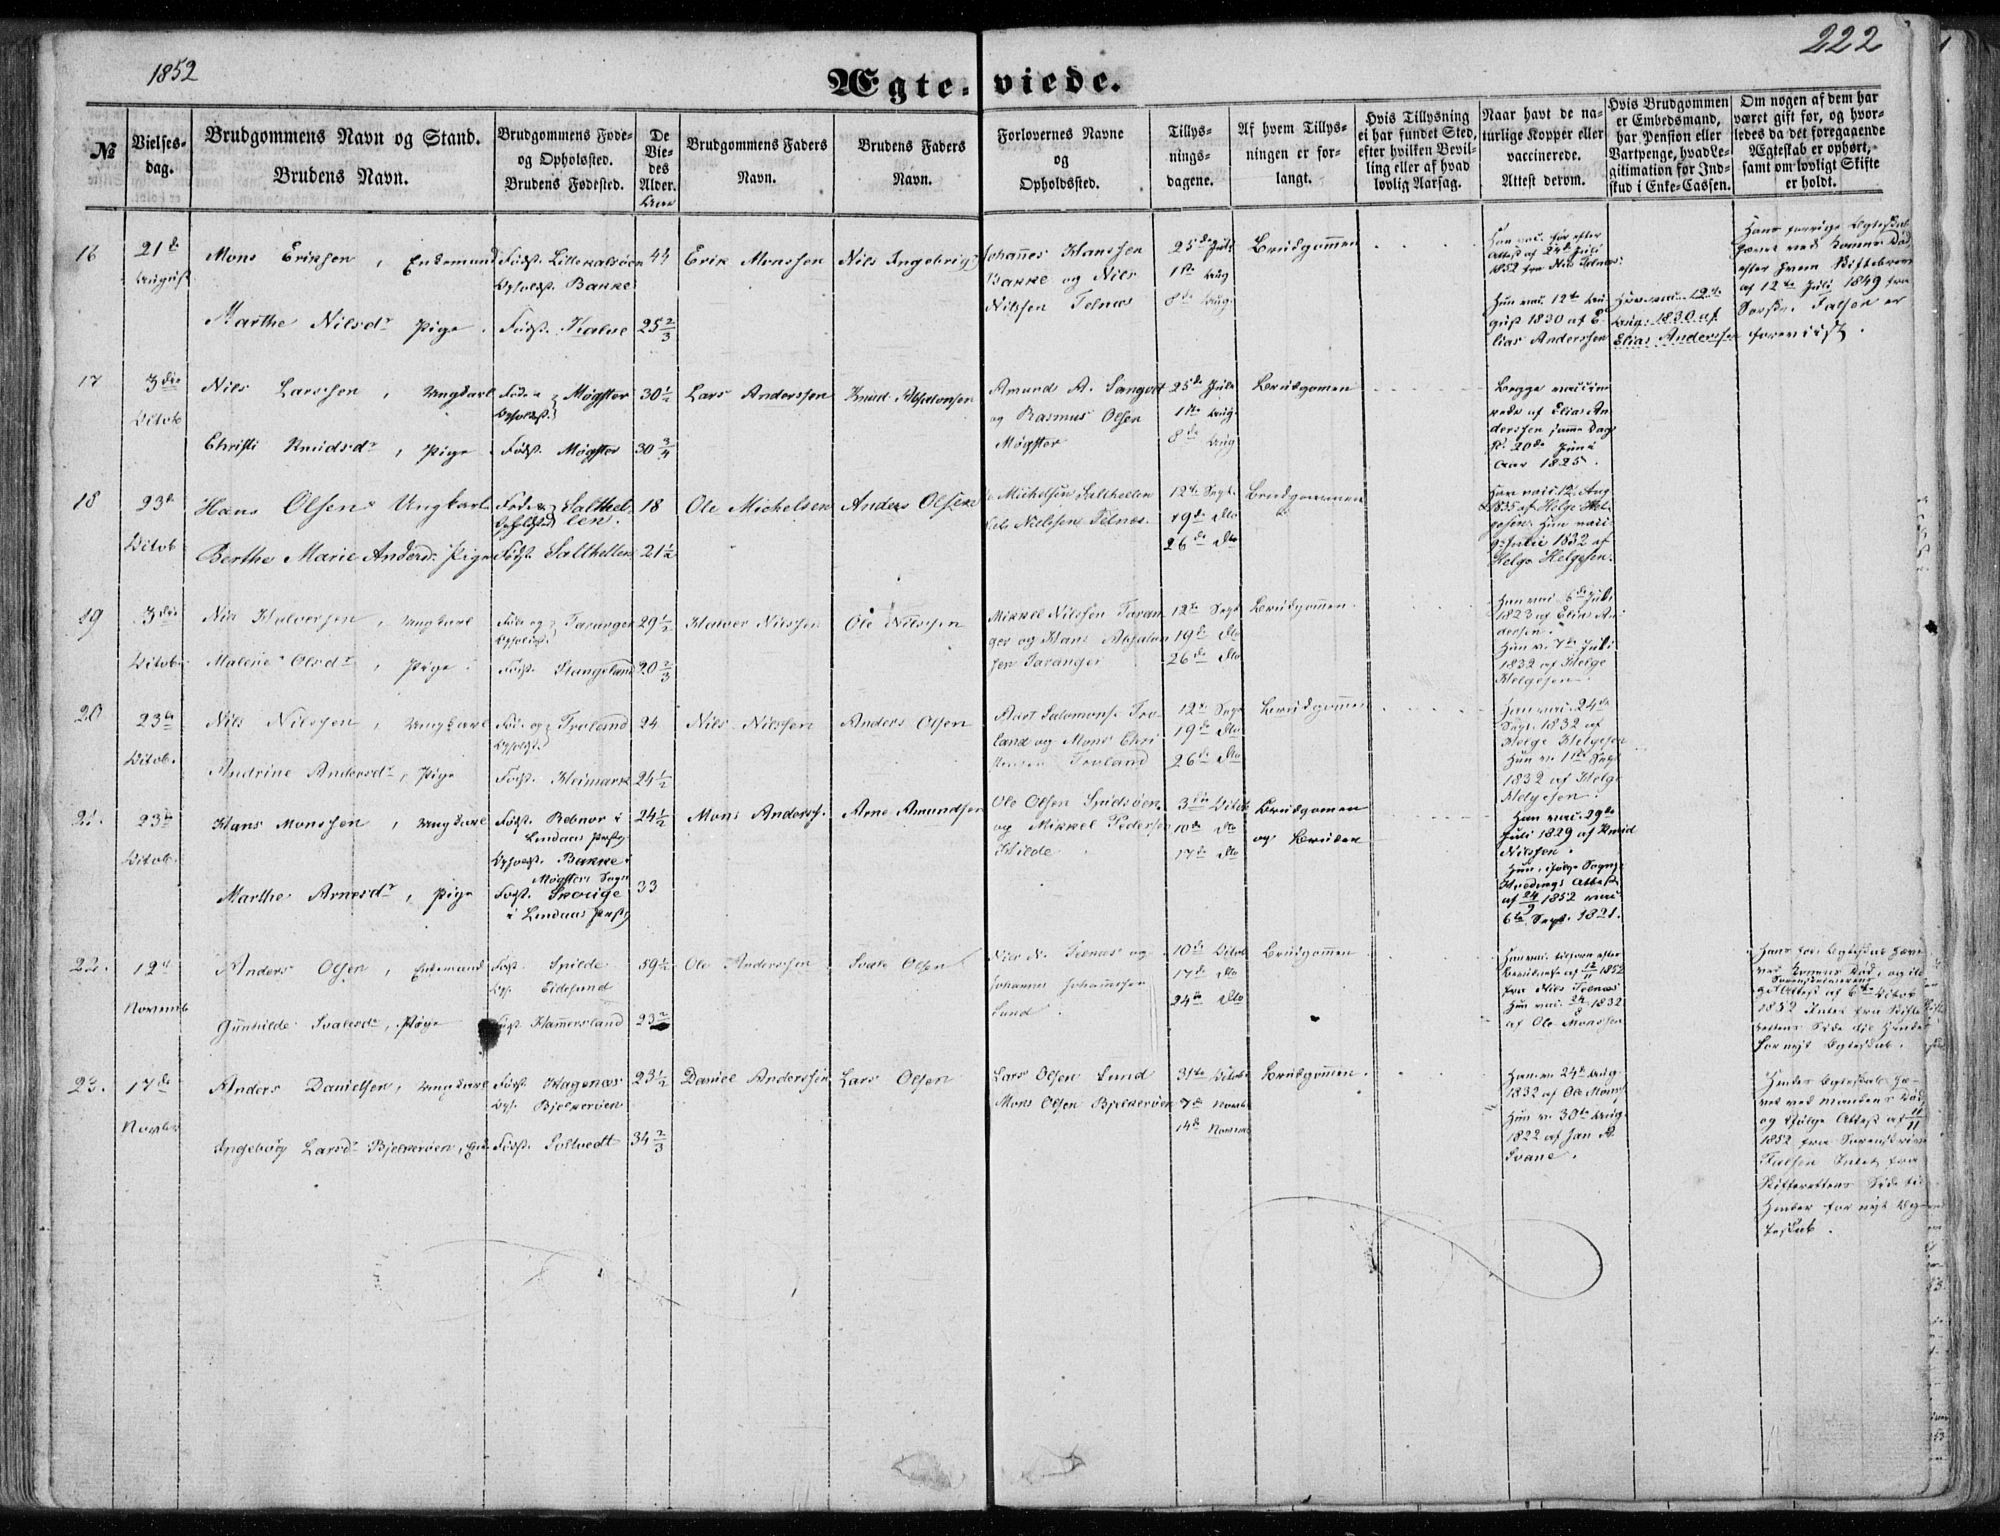 1852
222
Ægte-viede.
№
Vielses-
dag.
Brudgommens Navn og Stand.
Brudens Navn.
Brudgommens Føde-
og Opholdssted.
Brudens Fødested.
De
Vie-
des
Alder.
Brudgommens Faders
Navn.
Brudens Faders
Navn.
Forlovernes Navne
og
Opholdssted.
Tillys-
nings-
dagene.
Af hvem Tillys-
ningen er for-
langt.
Hvis Tillysning
ei har fundet Sted,
efter hvilken Bevil-
ling eller af hvad
lovlig Aarsag.
Naar havt de na-
turlige Kopper eller
vaccinerede.
Attest derom.
Hvis Brudgommen
er Embedsmand,
har Pension eller
Vartpenge, hvad Le-
gitimation for Ind-
skud i Enke-Cassen.
Om nogen af dem har
været gift før, og hvor-
ledes da det foregaaende
Ægteskab er ophørt,
samt om lovligt Skifte
er holdt.
16
21de
August
Mons Eriksen, Enkemand
Marthe Nilsdr Pige
Født. Lillekalsøen
Opholdst. Bakke
Født. Kalve
44
25 2/3
Erik Monssen
Nils Ingebrigts
Johannes Hanssen
Bakke og Nils
Nilssen Telnæs
25de Juli
1ste Aug
8de Aug.
Brudgommen
1852 fra Nils Telnæs
Hun vac. 12te Au
gust 1830 af E
lias Anderssen
Hun vac. 12te
Aug. 1830 af
Elias Anderssen
Hans forrige Ægteskab
hævet ved Konens Død,
efter hvem Skiftebrev
af 12te Juli 1849 fra
Sorskr. Falsen er
foreviist.
17
3die
Octob
Nils Larssen, Ungkarl
Christi Knudsdr, Pige
Føde- Møgster
Opholdst.
Født. Møgster
30 1/2
30 3/4
Lars Anderssen
Knud Absalonsen
Amund A. Sangolt
og Rasmus Olsen
Møgster
25de Juli
1ste Aug.
8de Aug
Brudgomen
Begge vaccine
rede af Elias An
derssen samme Dag
d. 20de Juni
Aar 1825.
18
23d
Octob
Hans Olsen Ungkarl
Berthe Marie Andersd. Pige
Føde & Salthel
Opholdsted len.
Født. Salthellen
18
21 1/2
Ole Michelsen
Anders Olsen
Michelsen Salthellen
Nielsen Telnæs.
12te Sept.
19de dto
26de dto
Brudgommen
Han vac. 12 Aug
1835 af Helge Hel
gesen. Hun vacc
9 Julie 1832 af
Helge Helgesen.
19
3die
Octob.
Nils Halversen, Ungkarl
Malene Olsdr, Pige
Føde og Taranger
Opholdst.
Født. Stangeland
29 1/2
20 2/3
Halver Nilssen
Ole Nilssen
Mikkel Nilssen Taran
ger og Hans Absalon
sen Taranger
12te Sept
19de dto
26de dto
Brudgommen.
Han vac. 6te Juli
1823 af Elias An
dersen.
Hun v. 7de Juli
1832 af Helge
Helgesen.
20
23de
Octob.
Nils Nilssen, Ungkarl
Andrine Andersdr, Pige
Føde og Troland
Opholdst.
Født. Heimark
24
24 1/2
Nils Nilssen
Anders Olsen
Salomons. Tro
land og Mons Chri
stensen Troland
12te Sept
19de dto
26de dto
Brudgommen
Han vac. 24de
Sept. 1832 af
Helge Helgesen
Hun v. 11te Sept
1832 af Helge
Helgesen.
21.
23de
Octob.
Hans Monssen, Ungkarl
Marthe Arnesdr, Pige
Født. Rebnor i
Lindaas Præstg
Opholdst. Bakke
Møgsters Sogn
Født. Skouge
i Lindaas Præstg
24 1/2
33
Mons Anderss.
Arne Amundsen
Ole Olsen Spidsøen
og Mikkel Pedersen
Hilde
3die Octob
10de dto
17de dto
Brudgomen
og Bruden
Han vac. 29de
Juli 1829 af Knud
Nilssen.
Hun, ifølge Sogne
Attest
af 24/9 1852 vac.
6te Sept. 1821.
22.
12te
Novemb
Anders Olsen, Enkemand
Gunhilde Svalesdr, Pige
Født. Spilde
Oph. Eidesund
Født. Hammersland
59 1/2
23 2/3
Ole Anderssen
Svale Olsen
Nils N. Telnæs og
Johannes Johannessen
Sund.
10de Octob
17de dto
24de dto
Brudgommen
1852
fra Nils Telnæs
Hun vac. 1832
af Ole Monssen
Hans for. Ægteskab hævet
ved Konens Død, og ifl
Sorenskriverens
Attest af 6te Octob
1852 Intet fra Skifte
rettens Side til Hinder
for nyt Ægteskab.
23.
17de
Novbr
Anders Danielsen, Ungkarl
Ingeborg Larsdr Bjelkerøen, Enke
Født. Hagenæs
Oph. Bjelkerøen
Født. Soltvedt
23 1/2
34 2/3
Daniel Anderssen
Lars Olsen
Lars Olsen Sund
Mons Olsen Bjelkerøen
31te Octobr
7de Novb.
14de Novemb
Brudgommen.
Han v. 24de Aug.
1832 af Ole Mons
Hun v. 30te Aug.
1822 af Jan A.
Svane.
Hendes Ægteskab hæ
vet ved Mandens Død,
og ifølge Attest af 11/11
1852 fra Sorenskriver
Falsen Intet fra
Skifterettens Side til
Hinder for nyt Æg
teskab.